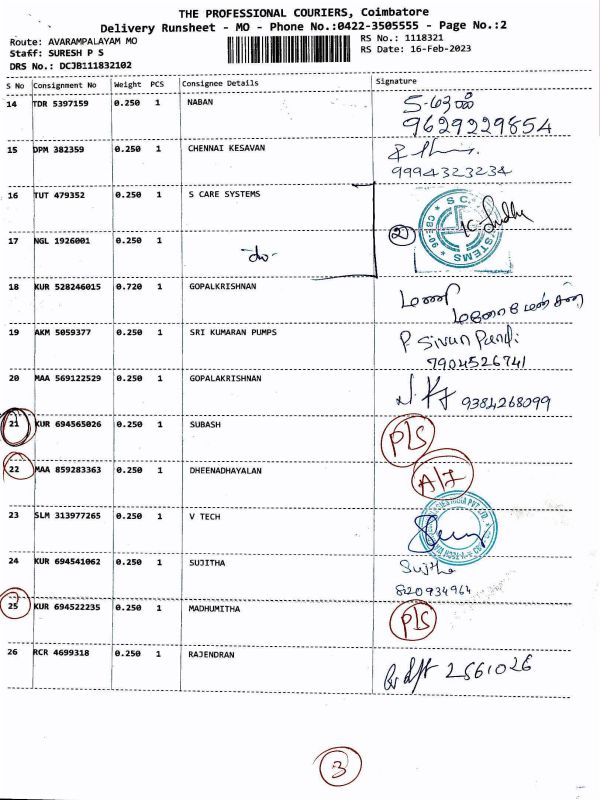 THE PROFESSIONAL COURIERS, Coimbatore
Delivery Runsheet - MO - Phone No.:0422-3505555 - Page No.:2
Route: AVARAMPALAYAM MO
RS No.: 1118321
Staff: SURESH P S
RS Date: 16-Feb-2023
DRS No.: DCJB111832102
S No Consignment No Weight PCS Consignee Details Signature
14 TDR 5397159 0.250 1 NABAN
9629229854
15 DPM 382359 0.250 1 CHENNAI KESAVAN
9994323234
16 TUT 479352 0.250 1 S CARE SYSTEMS
17 NGL 1926001 0.250 1 -do- 2)
18 KUR 528246015 0.720 1 GOPALKRISHNAN மணி
19 AKM 5059377 0.250 1 SRI KUMARAN PUMPS P. Sivan Pandi
7904526741
20 MAA 569122529 0.250 1 GOPALAKRISHNAN 9384268099
21 KUR 694565026 0.250 1 SUBASH P/S
22 MAA 859283363 0.250 1 DHEENADHAYALAN A/I
23 SLM 313977265 0.250 1 V TECH
24 KUR 694541062 0.250 1 SUJITHA Sujitha
8220934964
25 KUR 694522235 0.250 1 MADHUMITHA P/S
26 RCR 4699318 0.250 1 RAJENDRAN 2561026
3